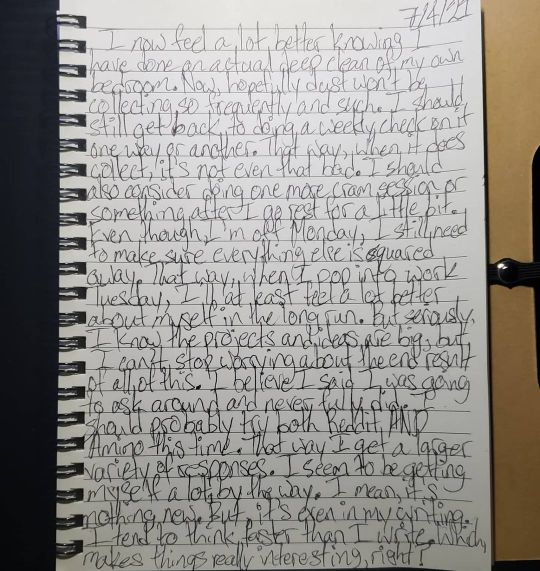 7/4/21
I now feel a lot better knowing I
have done an actual deep clean of my own
bedroom. Now, hopefully dust won't be
collecting so frequently and such. I should
still get back to doing a weekly check on it
one way or another. That way, when it does
collect, it's not even that bad. I should
also consider doing one more cram session or
something after I go rest for a little bit.
Even though, I'm off Monday, I still need
to make sure everything else is squared
away. That way, when I pop into work
Tuesday, I'll at least feel a lot better
about myself in the long run. But seriously,
I know the projects and ideas are big, but
I can't stop worrying about the end result
of all of this. I believe I said I was going
to ask around and never fully did. I
should probably try both Reddit AND
Amino this time. That way I get a larger
variety of responses. I seem to be getting
myself a lot, by the way. I mean, it's
nothing new. But, it's even in my writing.
I tend to think faster than I write. Which,
makes things really interesting, right?